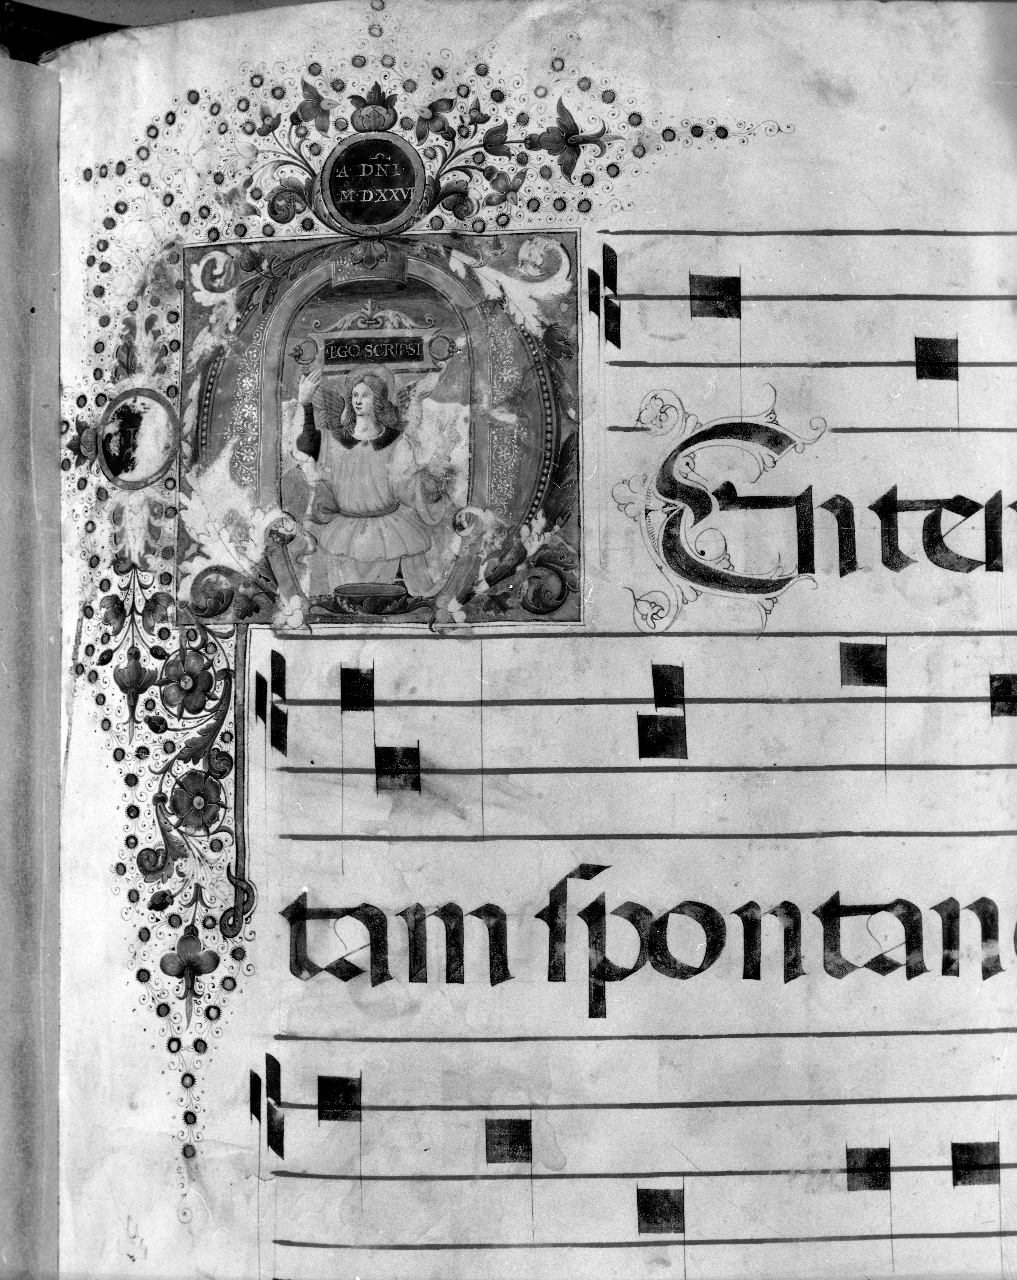 A DNI
M·DXXVI
EGO SCRIPSI
Enter
tam spontan